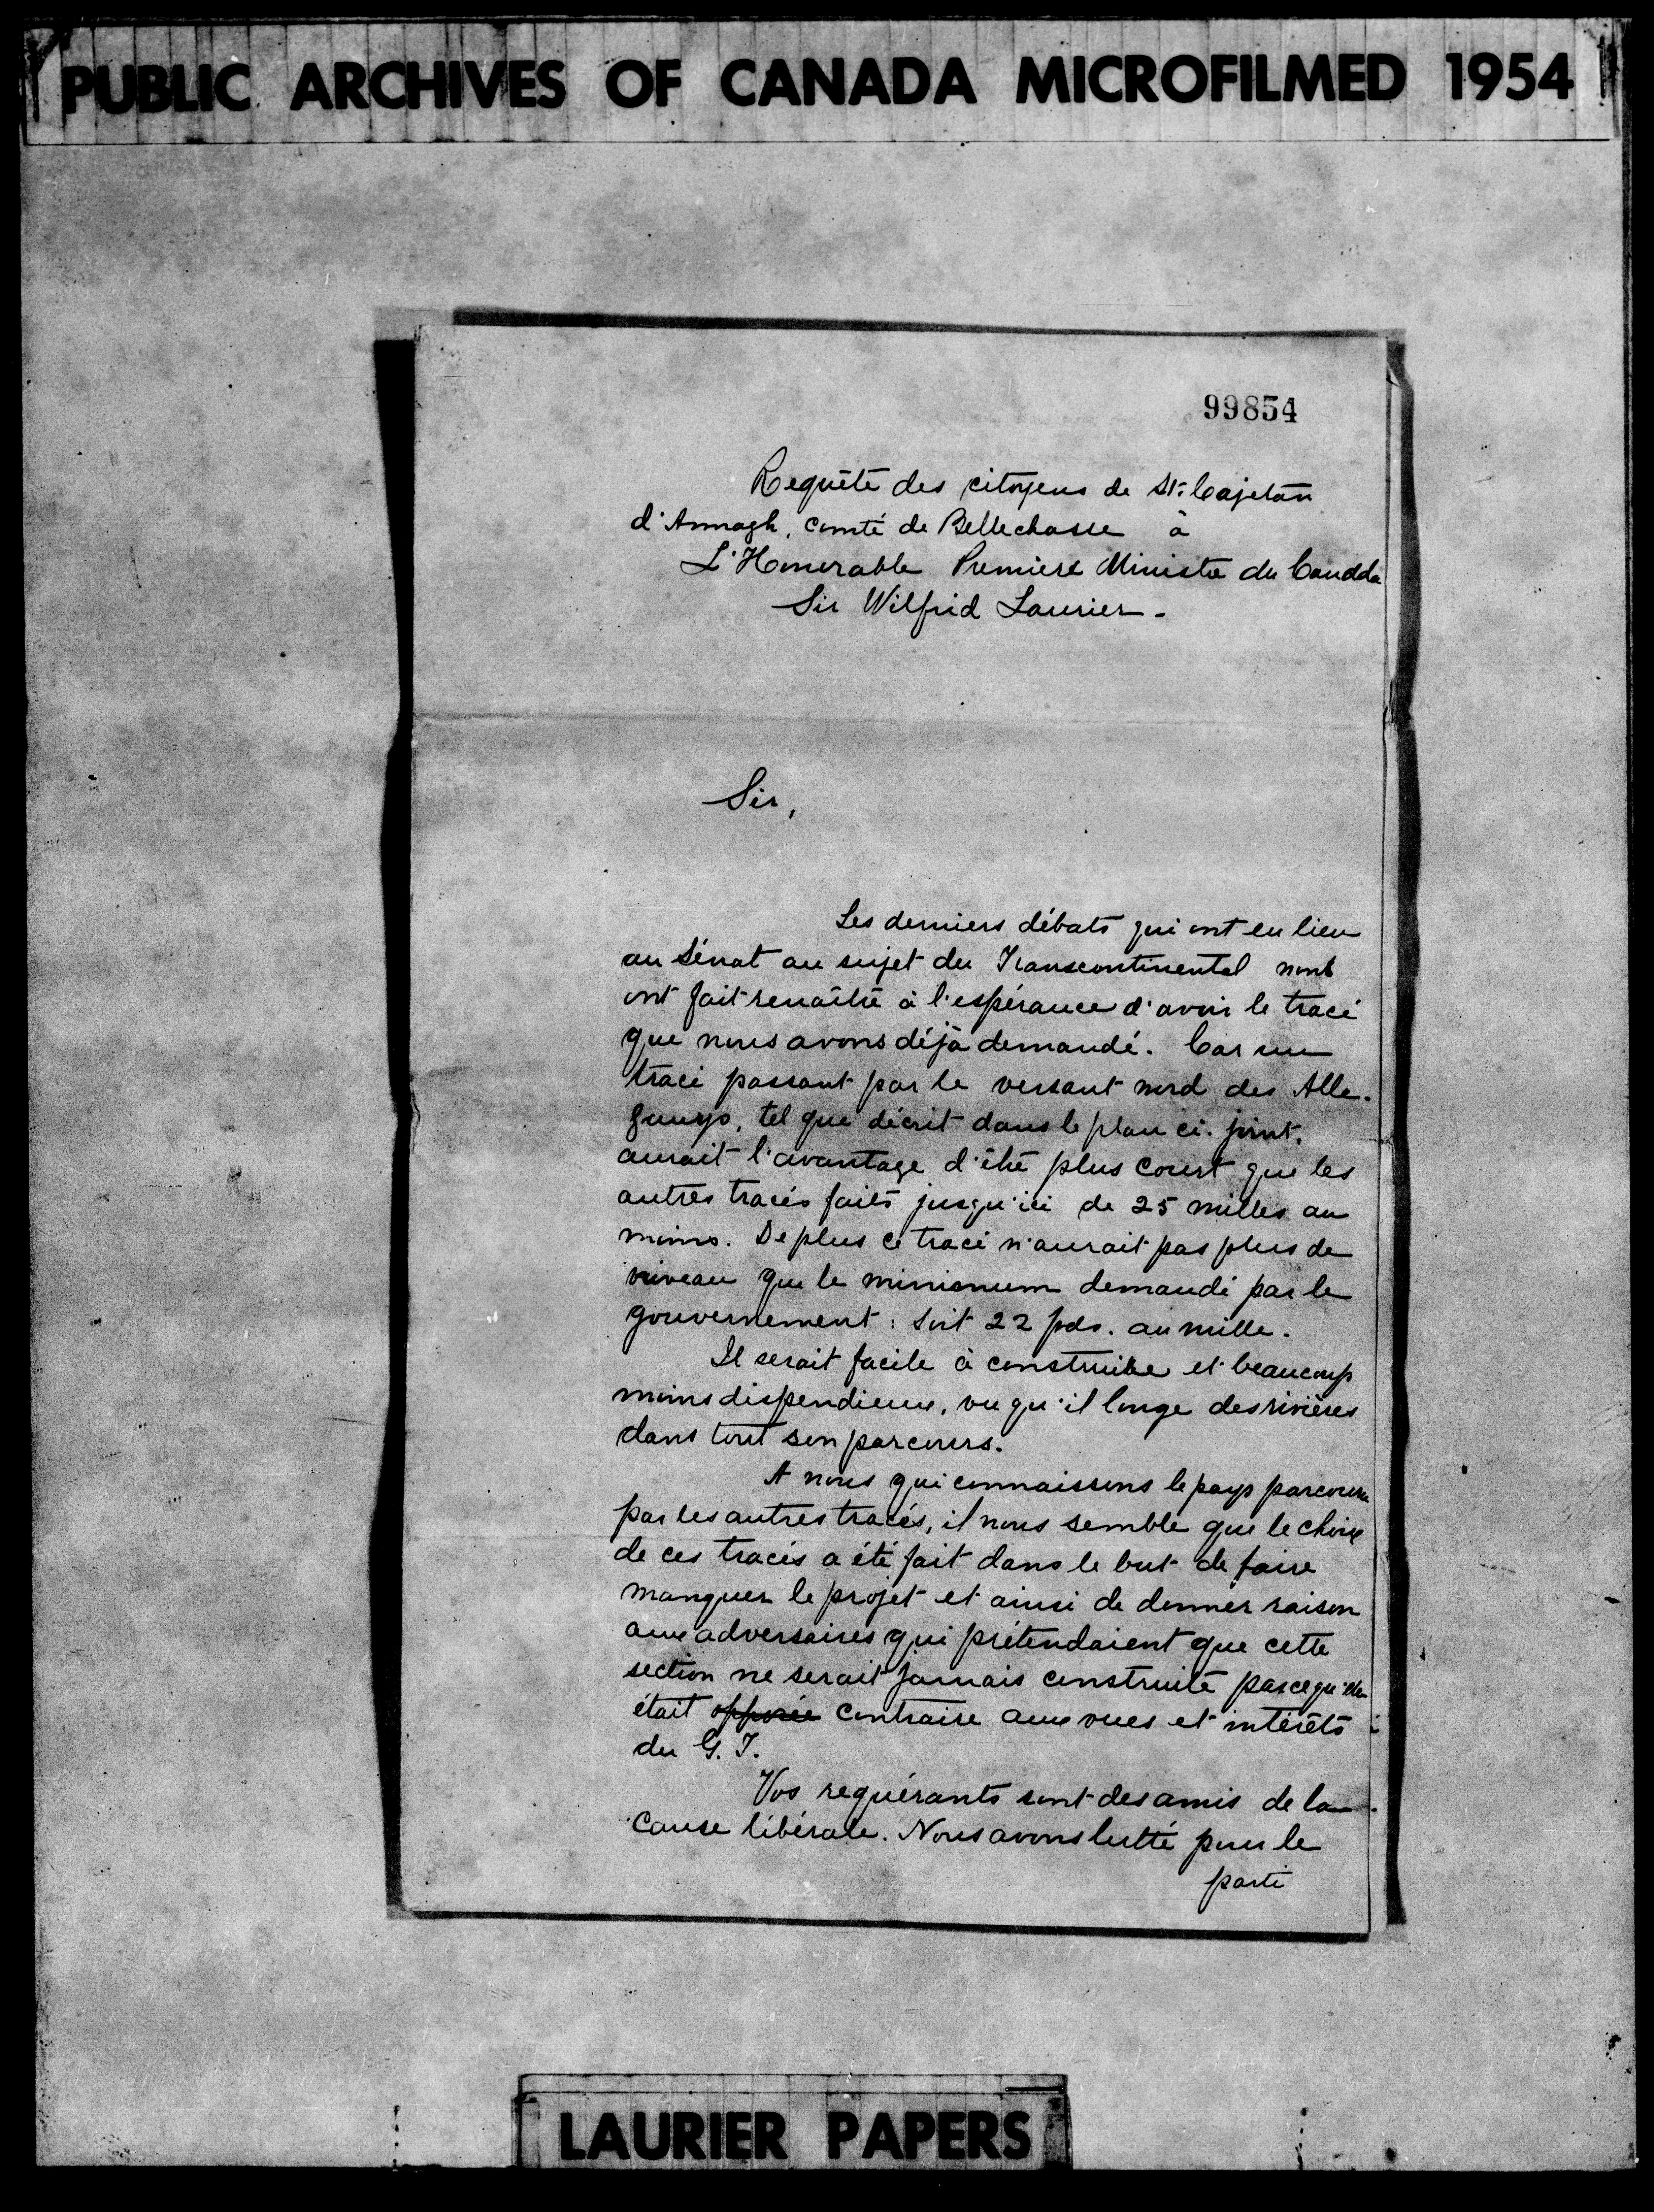 PUBLIC ARCHIVES OF CANADA MICROFILMED 1954
99854
Requête des citoyens de St. Cajetan
d'Armagh, comté de Bellechasse à
L'Honorable Premiere Ministre du Canada
Sir Wilfrid Laurier -
Sir,
Les derniers débats qui ont eu lieu
au Sénat au sujet du Transcontinental nous
ont fait renaître à l'espérance d'avoir le tracé
que nous avons déjà demandé. Car un
tracé passant par le versant nord des Alle-
ganys, tel que décrit dans le plan ci-joint,
aurait l'avantage d'être plus court que les
autres tracés faits jusqu'ici de 25 milles au
moins. De plus ce tracé n'aurait pas plus de
niveau que le minimum demandé par le
gouvernement : soit 22 pds. au mille.
Il serait facile à construire et beaucoup
moins dispendieux, vu qu'il longe des rivières
dans tout son parcours.
A nous qui connaissons le pays parcouru
par les autres tracés, il nous semble que le choix
de ces tracés a été fait dans le but de faire
manquer le projet et ainsi de donner raison
aux adversaires qui prétendaient que cette
section ne serait jamais construite parcequ'elle
était opposée contraire aux vues et intérêts
du G. T.
Vos requérants sont des amis de la
cause libérale. Nous avons lutté pour le
parti
LAURIER PAPERS